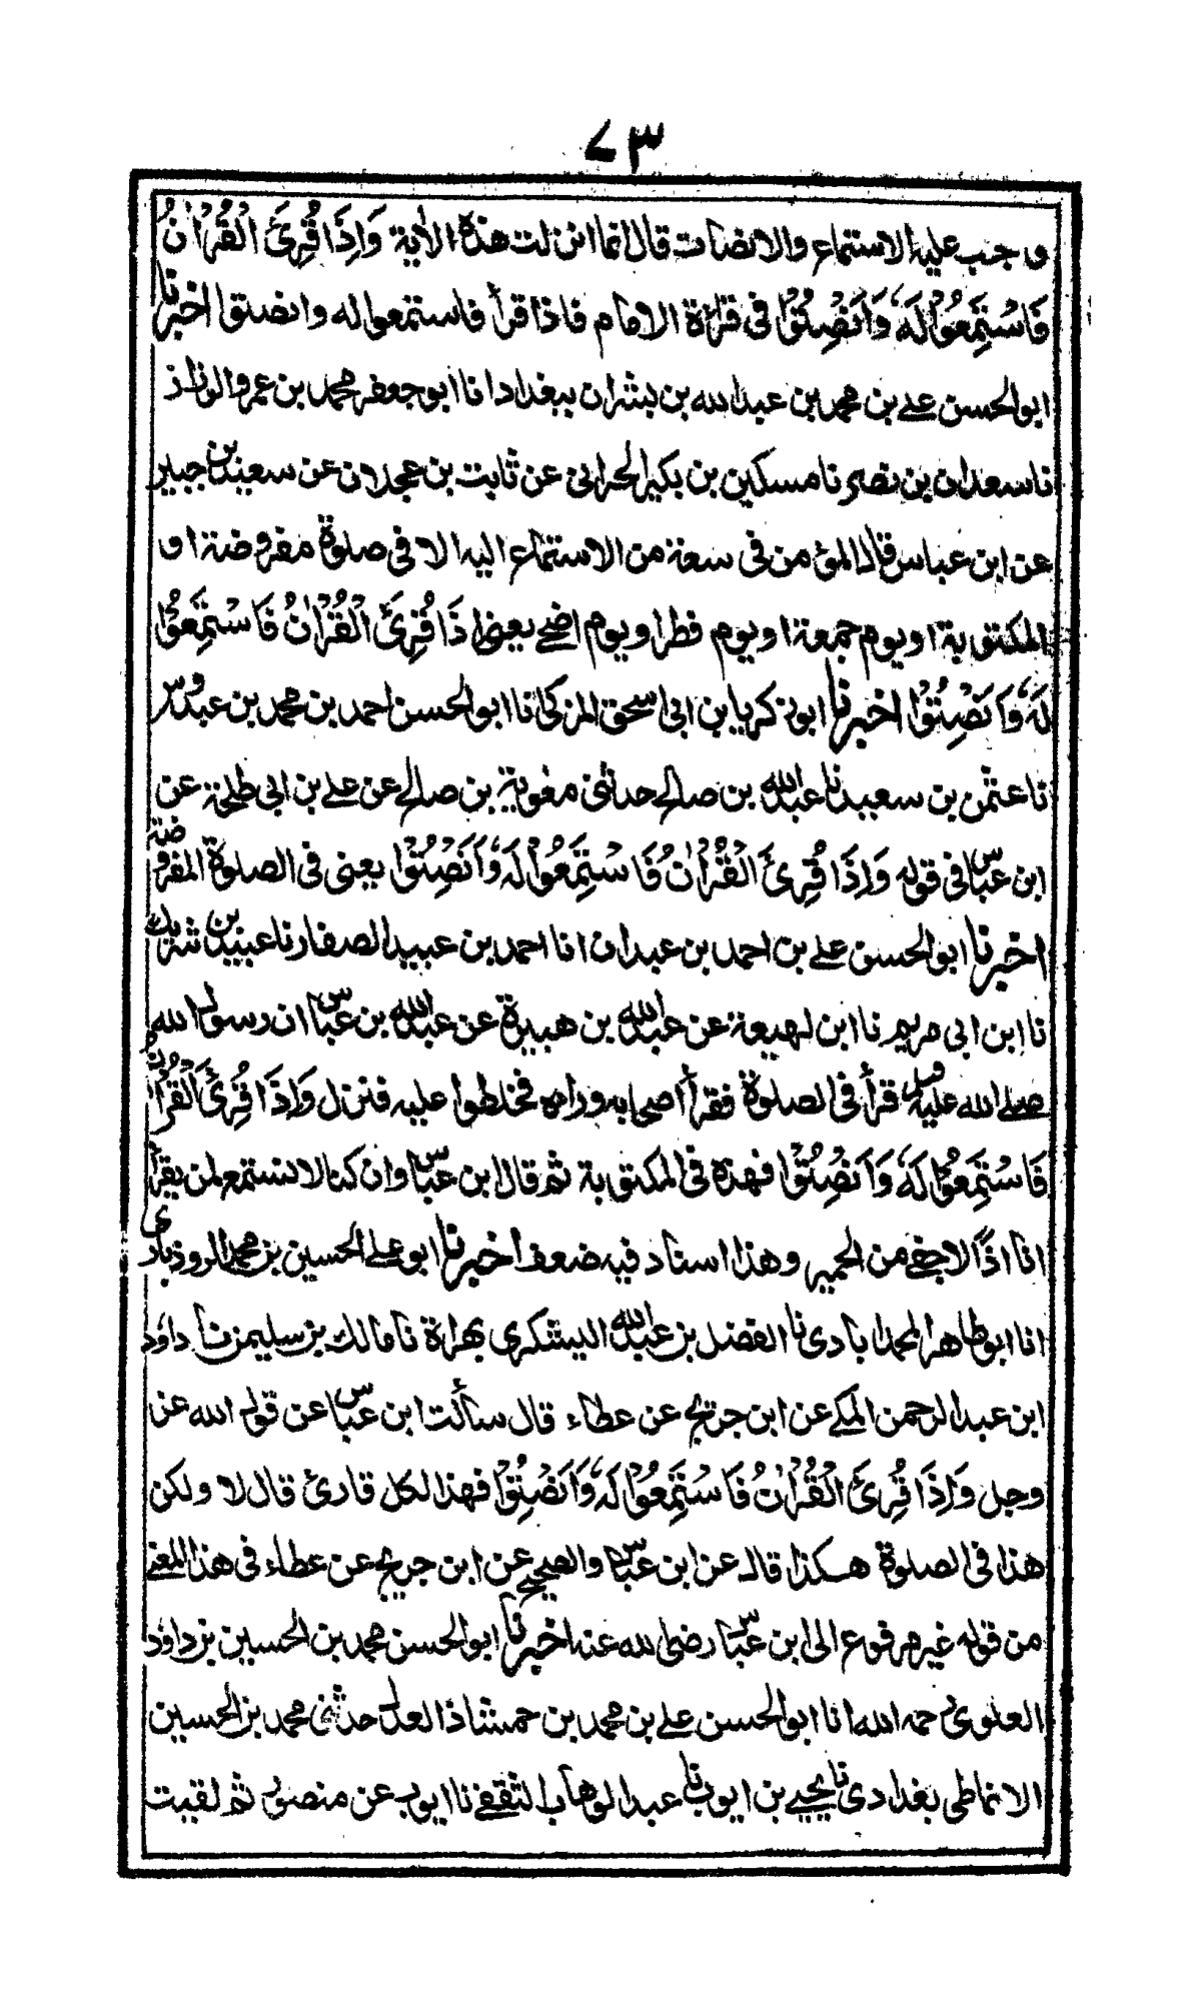 ٧٣
وجب عليه الاستماع والانصات قال انما انزلت هذه الاية وَاِذَا قُرِئَ الْقُرْاٰنُ
فَاسْتَمِعُوْا لَهٗ وَاَنْصِتُوْا فى قراءة الامام فاذا قرأ فاستمعوا له وانصتوا اخبرنا
ابوالحسن على بن محمد بن عبدالله بن بشران ببغداد انا ابوجعفر محمد بن عمرو الرزاز
نا سعدان بن نصر نا مسكين بن بكير الحرانى عن ثابت بن عجلان عن سعيد بن جبير
عن ابن عباس قال المؤمن فى سعة من الاستماع اليه الا فى صلوة مفروضة او
المكتوبة او يوم جمعة او يوم فطر او يوم اضحى يعنى اِذَا قُرِئَ الْقُرْاٰنُ فَاسْتَمِعُوْا
لَهٗ وَاَنْصِتُوْا اخبرنا ابو زكريا بن ابى اسحق المزكى انا ابوالحسن احمد بن محمد بن عبدوس
نا عثمن بن سعيد نا عبدالله بن صالح حدثنى معوية بن صالح عن على بن ابى طلحة عن
ابن عباس فى قوله وَاِذَا قُرِئَ الْقُرْاٰنُ فَاسْتَمِعُوْا لَهٗ وَاَنْصِتُوْا يعنى فى الصلوة المفروضة
اخبرنا ابوالحسن على بن احمد بن عبدان انا احمد بن عبيد الصفار نا عبيد بن شريك
نا ابن ابى مريم نا ابن لهيعة عن عبدالله بن هبيرة عن عبدالله بن عباس ان رسول الله
صلى الله عليه وسلم قرأ فى الصلوة فقرأ اصحابه وراءه فخلطوا عليه فنزل وَاِذَا قُرِئَ الْقُرْاٰنُ
فَاسْتَمِعُوْا لَهٗ وَاَنْصِتُوْا فهذه فى المكتوبة ثم قال ابن عباس وان كنا لا نستمع لمن يقرأ
انا اذًا لاجفى من الحمير وهذا اسناد فيه ضعف اخبرنا ابو على الحسين بن محمد الروذبارى
انا ابو طاهر المحمداباذى نا الفضل بن عبدالله اليشكرى بهراة نا مالك بن سليمن نا داؤد
ابن عبد الرحمن المكى عن ابن جريج عن عطاء قال سألت ابن عباس عن قول الله عز
وجل وَاِذَا قُرِئَ الْقُرْاٰنُ فَاسْتَمِعُوْا لَهٗ وَاَنْصِتُوْا فهذا لكل قارئ قال لا ولكن
هذا فى الصلوة هكذا قال عن ابن عباس والصحيح عن ابن جريج عن عطاء فى هذا المعنى
من قوله غير مرفوع الى ابن عباس رضى الله عنه اخبرنا ابوالحسن محمد بن الحسين بن داؤد
العلوى رحمه الله انا ابوالحسن على بن محمد بن حمشاذ العدل حدثنى محمد بن الحسين
الانماطى بغدادى نا يحيى بن ايوب نا عبد الوهاب الثقفى نا ايوب عن منصور ثم لقيت